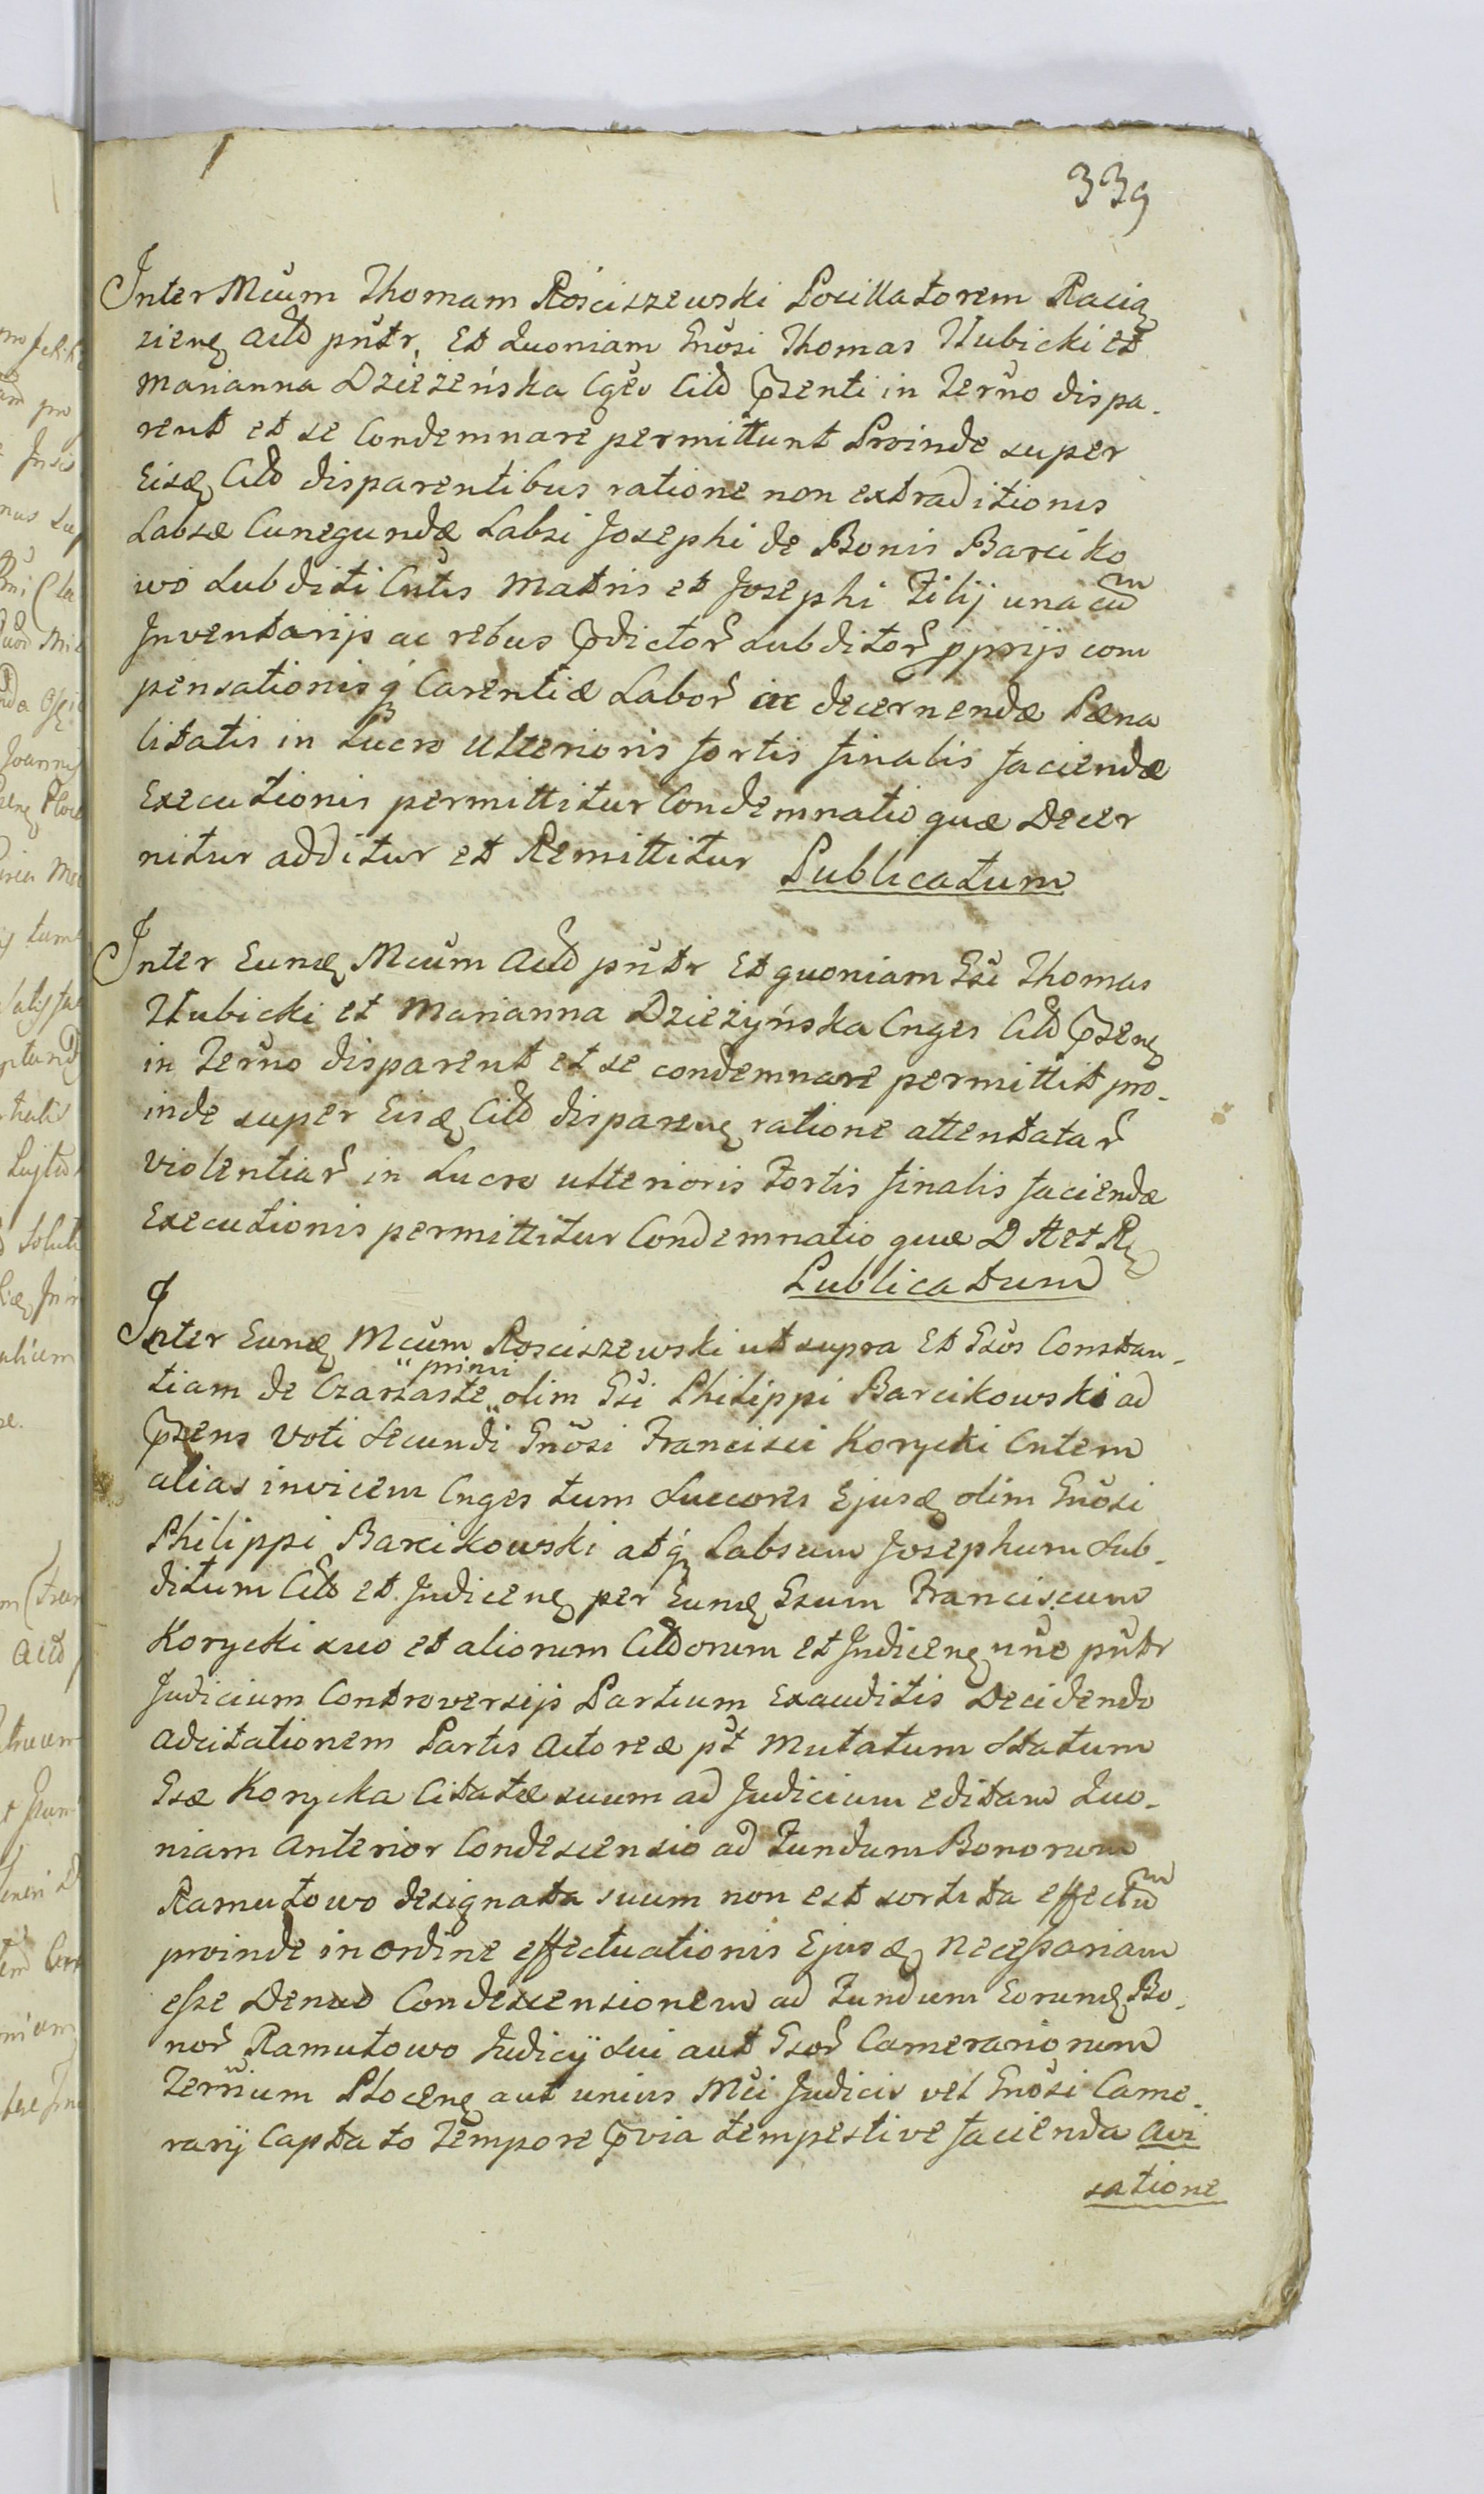 339
Inter Mcum Thomam Rościszewski Pocillatorem Racią
zienȩ Actō pn̄tr, Et Quoniam Gnōsi Thomas Hubicki et
Marianna Dzieżeńska Cgēs Citō Pzenti in Termō dispa-
rent et se Condemnare permittunt Proinde super
Eisdȩ Citō disparentibus ratione non extraditionis
Labsæ Cunegundæ Labsi Josephi de Bonis Barciko
wo Subditi Cntis Matris et Josephi Filij una cum
Inventarijs ac rebus Pdictor̄ subditor̄ pprijs com
pensationisq́ Carentiæ Labor̄ ac decernendæ Pæna
litatis in Lucro ulterioris fortis finalis faciendæ
Executionis permittitur Condemnatio quæ Decer
nitur additur et Remittitur Publicatum
Inter Eundȩ Mcum Actō pn̄tr Et quoniam Gsi Thomas
Hubicki et Marianna Dzieżyńska Cnges Citō Pzenȩ
in Termō disparent et se condemnare permittit pro-
inde super Eisdȩ Citō disparenȩ ratione attentatar̄
violentiar̄ in Lucro ulterioris Fortis finalis faciendæ
Executionis permittitur Condemnatio quæ D A et Rȩ
Publicatum
Inter Eundȩ Mcum Rosciszewski ut supra Et Gsos Constan-
primi
tiam de Czarzaste olim Gsi Philippi Barcikowski ad
Pzens Voti Secundi Gnōsi Francisci Korycki Cntem
alias invicem Cnges tum Succores Ejusdȩ olim Gnōsi
Philippi Barcikowski atq́ Labsum Josephum Sub-
ditum Citō et Judicenȩ per Eundȩ Gsum Franciscum
Korycki suo et aliorum Citōorum et Judicenȩ nn̄e pn̄tr
Judicium Controversijs Partium Exauditis Decidendo
Adcitationem Partis Actoreæ pt̄ Mutatum Statum
Gsæ Korycka Citatæ suum ad Judicium editam Quo-
niam Anterior Condescensio ad Fundum Bonorum
Ramutowo designata suum non est sortita effectum
proinde in ordine effectuationis Ejusdȩ Necessariam
esse Denuo Condescensionem ad Fundum Eorundȩ Bo-
nor̄ Ramutowo Judicij Sui aut Gsor̄ Camerariorum
Terrium Plocenȩ aut unius Mci Judicis vel Gnōsi Came-
rarij Captato Tempore Pvia tempestive facienda Avi
satione